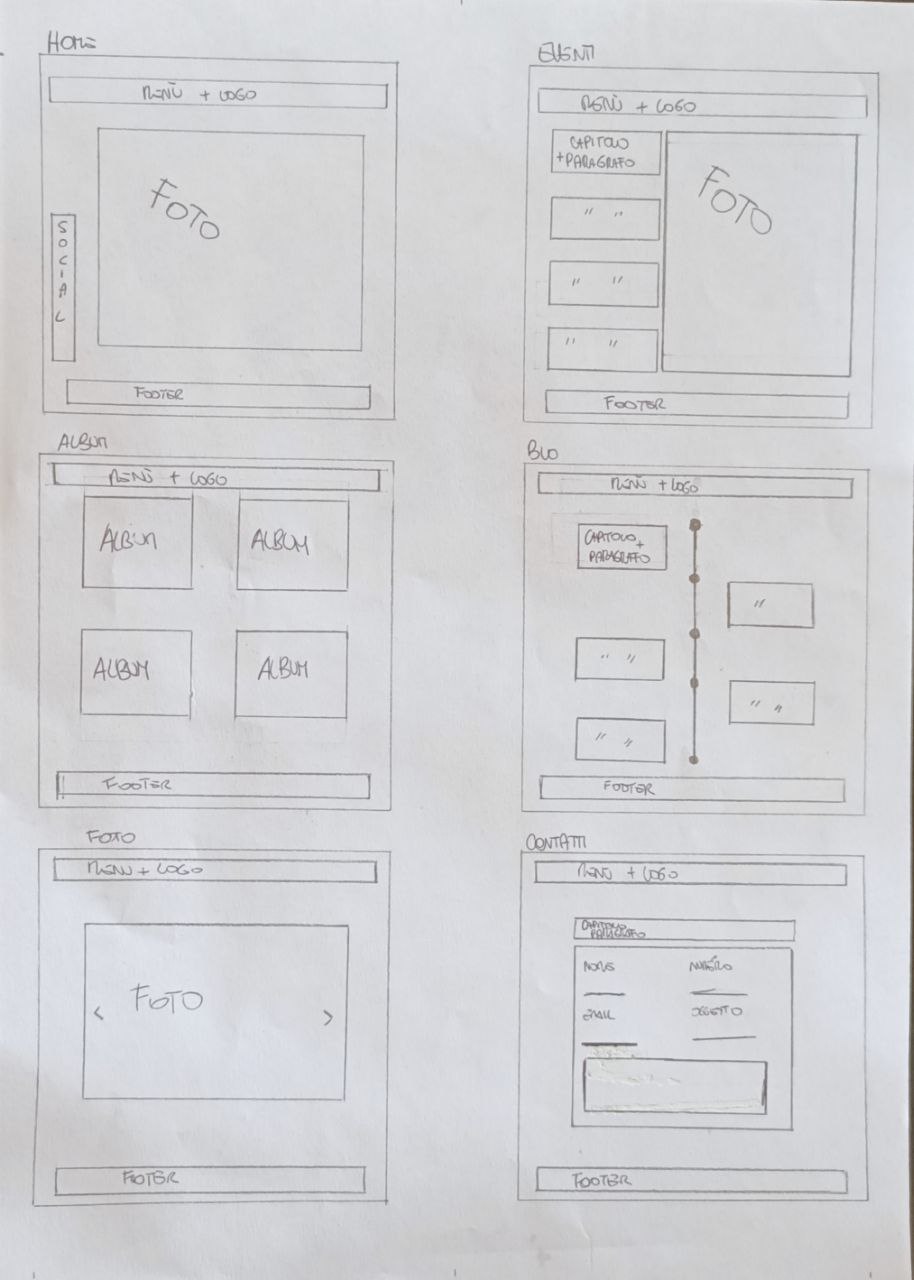 HOME
MENÙ + LOGO
FOTO
SOCIAL
FOOTER
EVENTI
MENÙ + LOGO
CAPITOLO
+PARAGRAFO
" "
" "
" "
FOTO
FOOTER
ALBUM
MENÙ + LOGO
ALBUM ALBUM
ALBUM ALBUM
FOOTER
BIO
MENÙ + LOGO
CAPITOLO+
PARAGRAFO
"
" "
" "
" "
FOOTER
FOTO
MENÙ + LOGO
FOTO
< >
FOOTER
CONTATTI
MENÙ + LOGO
CAPITOLO
PARAGRAFO
NOME NUMERO
EMAIL OGGETTO
FOOTER